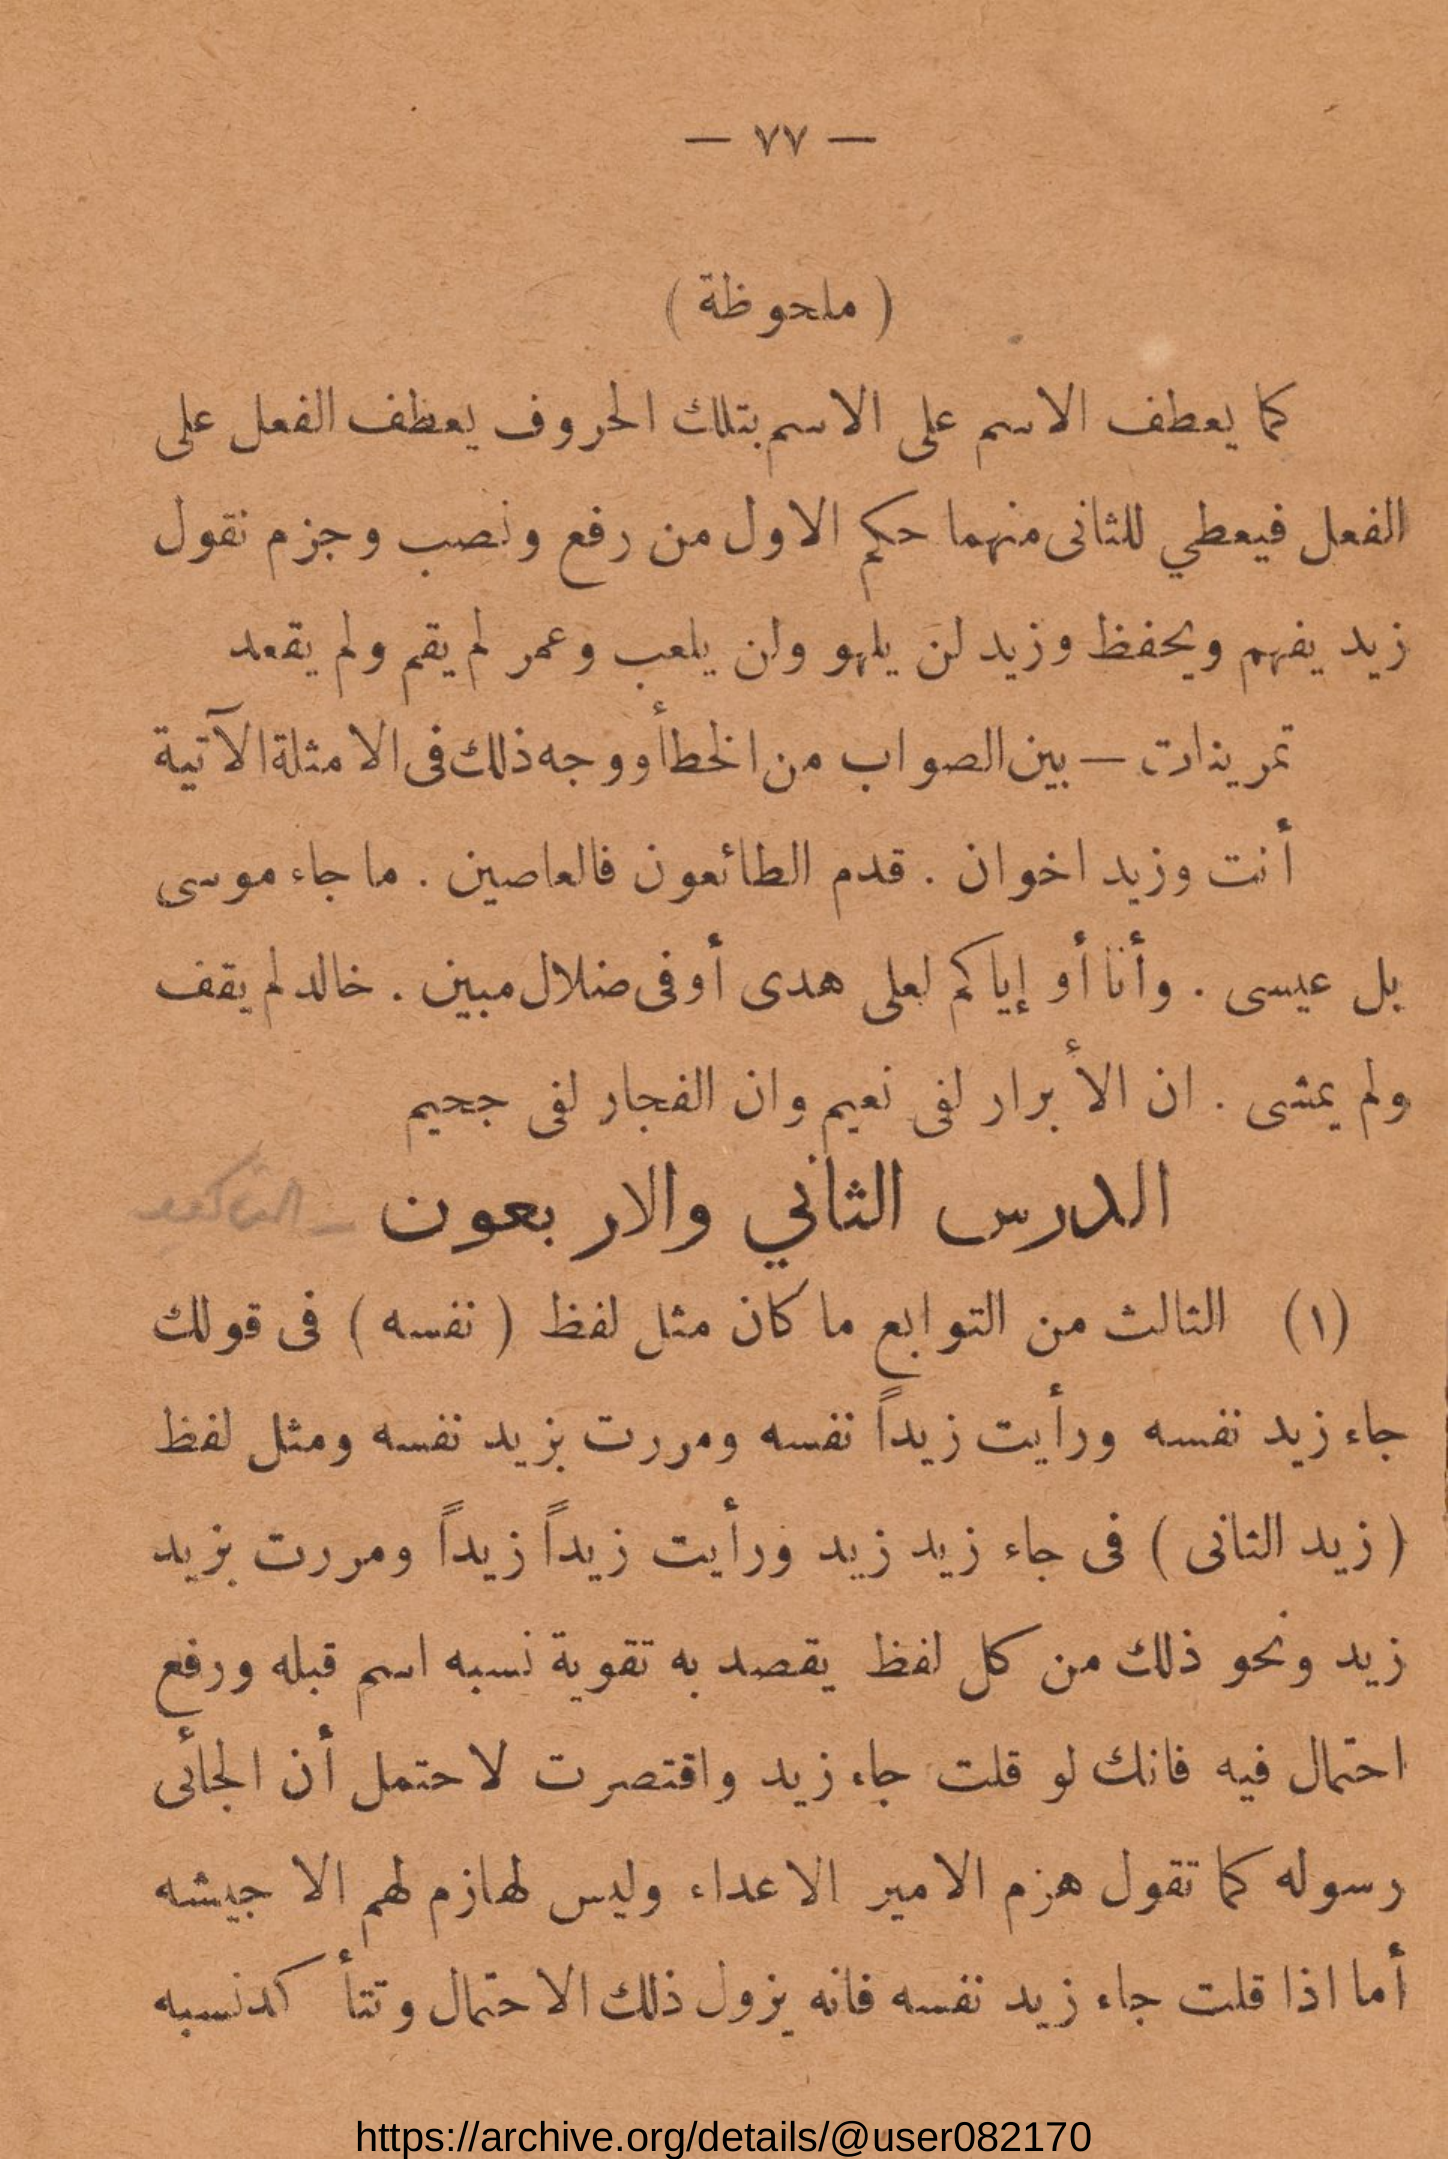 — ٧٧ —
( ملحوظة )
كما يعطف الاسم على الاسم بتلك الحروف يعطف الفعل على
الفعل فيعطي للثانى منهما حكم الاول من رفع ونصب وجزم نقول
زيد يفهم ويحفظ وزيد لن يلهو ولن يلعب وعمر لم يقم ولم يقعد
تمرينات — بين الصواب من الخطأ ووجه ذلك فى الامثلة الآتية
أنت وزيد اخوان . قدم الطائعون فالعاصين . ما جاء موسى
بل عيسى . وأنا أو إياكم لعلى هدى أو فى ضلال مبين . خالد لم يقف
ولم يمشى . ان الأبرار لفى نعيم وان الفجار لفى جحيم
الدرس الثاني والاربعون – التأكيد
(١) الثالث من التوابع ما كان مثل لفظ ( نفسه ) فى قولك
جاء زيد نفسه ورأيت زيداً نفسه ومررت بزيد نفسه ومثل لفظ
( زيد الثانى ) فى جاء زيد زيد ورأيت زيداً زيداً ومررت بزيد
زيد ونحو ذلك من كل لفظ يقصد به تقوية نسبه اسم قبله ورفع
احتمال فيه فانك لو قلت جاء زيد واقتصرت لاحتمل أن الجائى
رسوله كما تقول هزم الامير الاعداء وليس لهازم لهم الا جيشه
أما اذا قلت جاء زيد نفسه فانه يزول ذلك الاحتمال وتتأكد نسبه
https://archive.org/details/@user082170